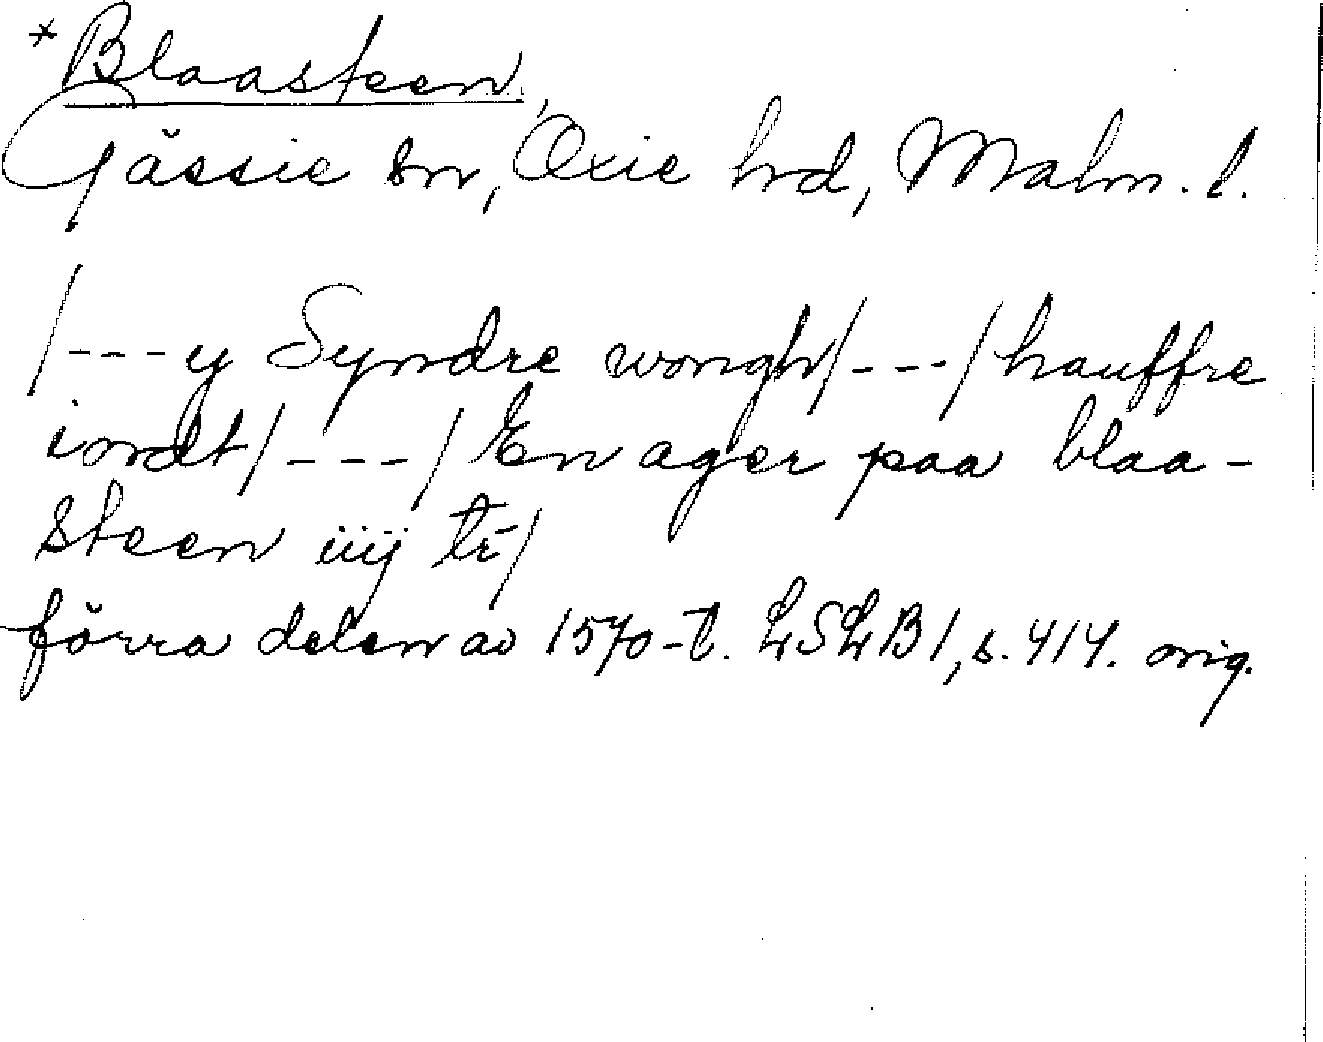 *Blaasteen,
Gässie sn, Oxie hrd, Malm. l.
/---y Syndre wongh/---/hauffre
iordt/---/En ager paa blaa-
steen iiij tr/
förra delen av 1570-t. LSLB1, s. 414. orig.